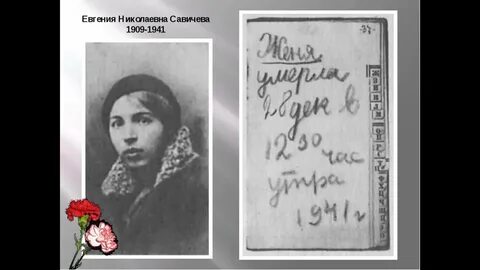 Евгения Николаевна Савичева
1909-1941
Женя
умерла
28 дек в
12 30 час
утра
1941 г